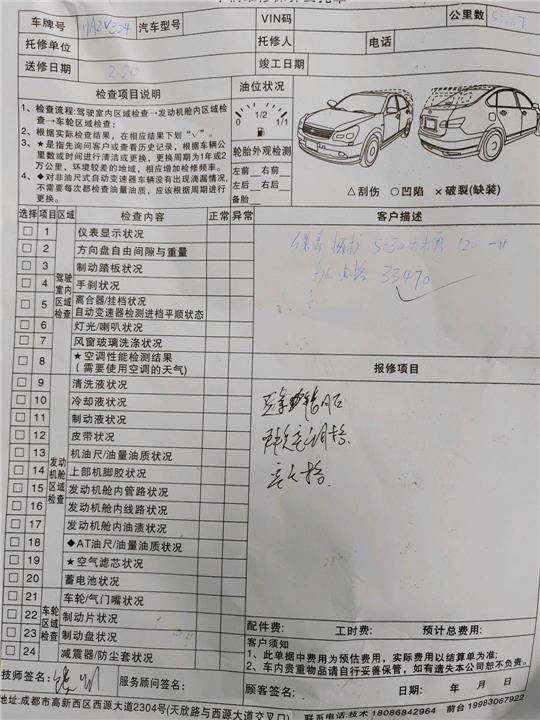 车牌号 汽车型号 VIN码 公里数
托修单位 托修人 电话
送修日期 2.20 竣工日期
检查项目说明
1、检查流程:驾驶室内区域检查→发动机舱内区域检
查→车轮区域检查;
2、根据实际检查结果，在相应结果下划“√”。
3、★是指先询问客户或查看历史记录，根据车辆公
里数或时间进行清洁或更换，更换周期为1年或2
万公里，环境较差的地域，相应增加检修频率。
4、◆对非油尺式自动变速器车辆没有出现滴漏情况，
不需要每次都检查油量油质，应该根据周期进行
更换。
油位状况
0 1/2 1/1
轮胎外观检测
左前 右前
左后 右后
备胎
△刮伤 ○凹陷 ×破裂(缺装)
选择 项目 区域 检查内容 正常 异常
驾驶室内区域检查
1 仪表显示状况
2 方向盘自由间隙与重量
3 制动踏板状况
4 手刹状况
5 离合器/挂档状况
自动变速器检测进档平顺状态
6 灯光/喇叭状况
7 风窗玻璃洗涤状况
8 ★空调性能检测结果
(需要使用空调的天气)
发动机舱区域检查
9 清洗液状况
10 冷却液状况
11 制动液状况
12 皮带状况
13 机油尺/油量油质状况
14 上部机脚胶状况
15 发动机舱内管路状况
16 发动机舱内线路状况
17 发动机舱内油渍状况
18 ◆AT油尺/油量油质状况
19 ★空气滤芯状况
20 蓄电池状况
车轮区域检查
21 车轮/气门嘴状况
22 制动片状况
23 制动盘状况
24 减震器/防尘套状况
客户描述
33470
报修项目
配件费: 工时费: 预计总费用:
客户须知
1、此单据中费用为预估费用，实际费用以结算单为准;
2、车内贵重物品请自行妥善保管，如有遗失本公司恕不负责。
技师签名: 服务顾问签名: 顾客签名: 日期: 年 月 日
地址:成都市高新西区西源大道2304号(天欣路与西源大道交叉口) 联系电话:技术 18086842964 前台 19983067922